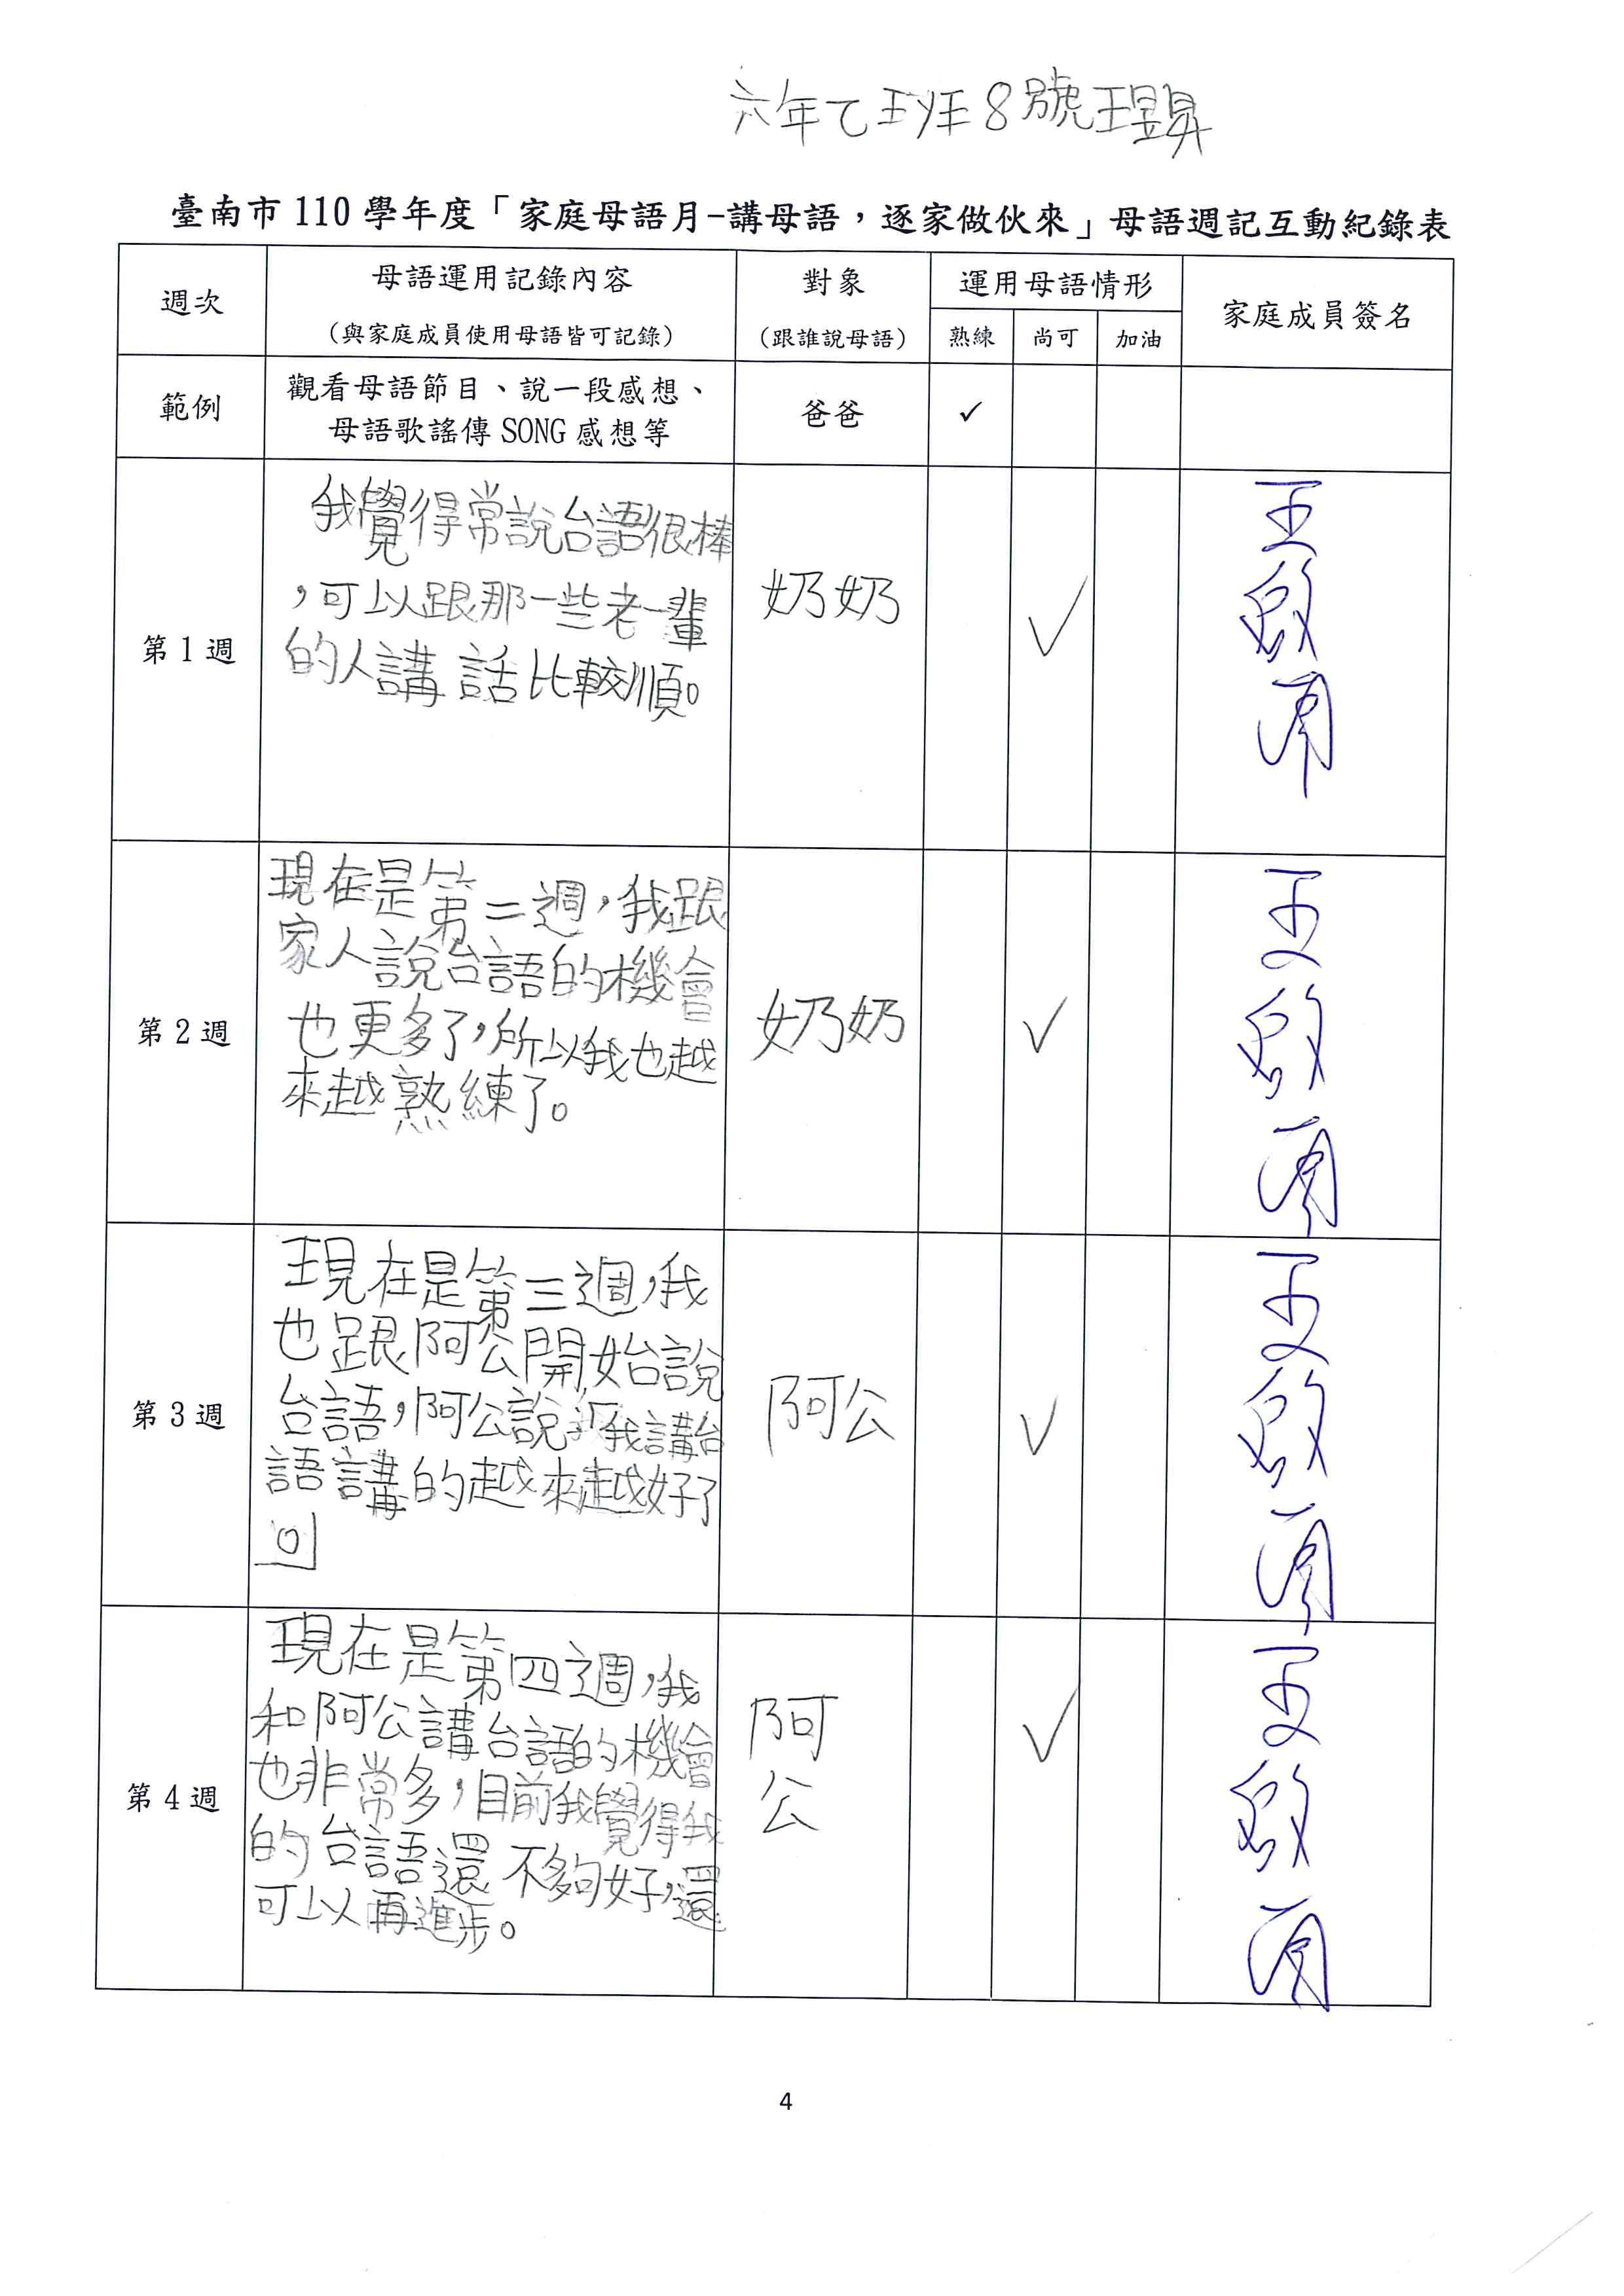 六年乙班8號王昱昇
臺南市110學年度「家庭母語月-講母語，逐家做伙來」母語週記互動紀錄表
週次
母語運用記錄內容
（與家庭成員使用母語皆可記錄）
對象
（跟誰說母語）
運用母語情形
熟練 尚可 加油
家庭成員簽名
範例
觀看母語節目、說一段感想、
母語歌謠傳SONG感想等
爸爸
✓
第1週
我覺得常說台語很棒
，可以跟那一些老一輩
的人講話比較順。
奶奶
✓
王
第2週
現在是第二週，我跟
家人說台語的機會
也更多了，所以我也越
來越熟練了。
奶奶
✓
王
第3週
現在是第三週，我
也跟阿公開始說
台語，阿公說「我講台
語講的越來越好了
。」
阿公
✓
王
第4週
現在是第四週，我
和阿公講台語的機會
也非常多，目前我覺得我
的台語還不夠好，還
可以再進步。
阿
公
✓
王
4